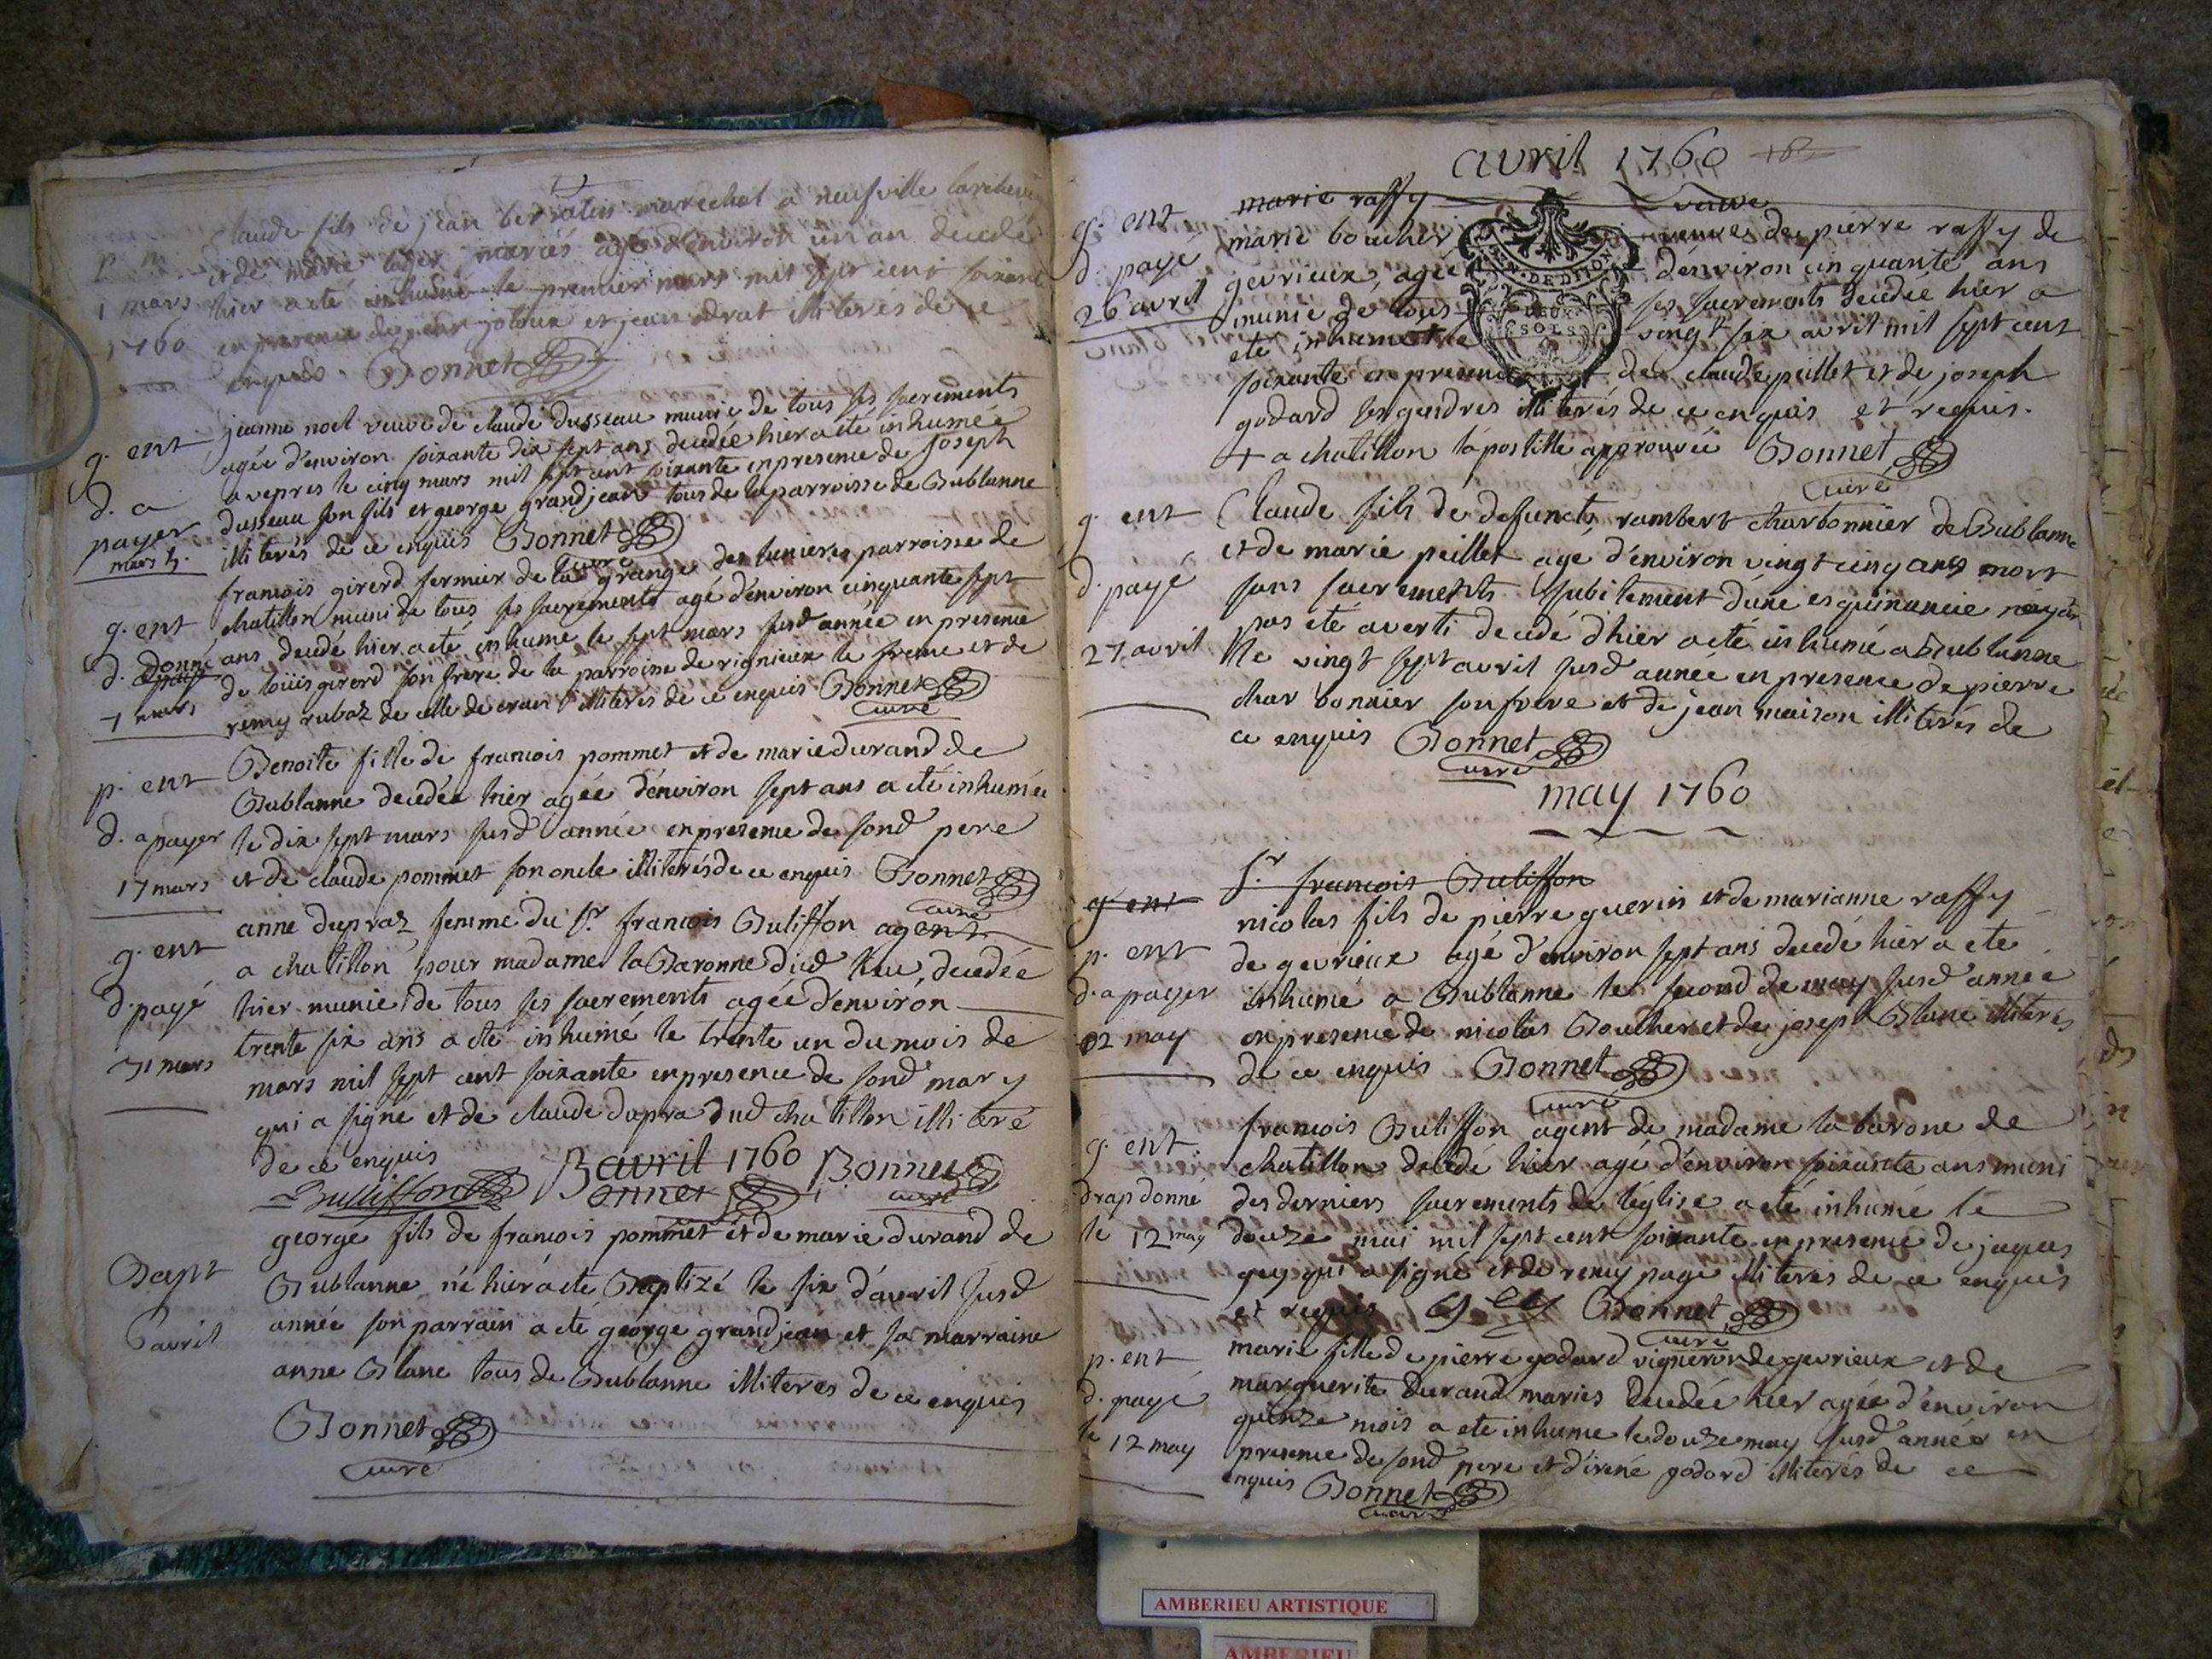 claude fils de jean marechal a neufville
et de marie mariés agé d'environ un an decedé
hier a été inhumé le premier mars mil sept cent soixante
en presence de et jean illiterés de ce
enquis. Bonnet
1 mars
1760
g. ent
d. a
payer
mars 5.
jeanne noel veuve de claude dusseau munie de tous ses sacrements
agée d'environ soixante dix sept ans decedée hier a été inhumée
a vepres le cinq mars mil sept cent soixante en presence de joseph
dusseau son fils et george grandjean tous de la parroisse de Bublanne
illiterés de ce enquis Bonnet
curé
g. ent
d. donné
7 mars
francois girerd fermier de la grange des lunieres parroisse de
chatillon muni de tous ses sacrements agé d'environ cinquante sept
ans decedé hier a été inhumé le sept mars susd année en presence
de loüis girerd son frere de la parroisse de rignieux le franc et de
remy rubaz de celle de crans illiterés de ce enquis Bonnet
curé
p. ent
d. a payer
17 mars
Benoite fille de francois pommet et de marie durand de
Bublanne decedée hier agée d'environ sept ans a été inhumée
le dix sept mars susd année en presence de sond pere
et de claude pommet son oncle illiterés de ce enquis Bonnet
curé
g. ent
d. payé
31 mars
anne dupraz femme du Sr. francois Buliffon agent
a chatillon pour madame la Baronne dud lieu, decedée
hier munie de tous ses sacrements agée d'environ
trente six ans a été inhumé le trente un du mois de
mars mil sept cent soixante en presence de sond mary
qui a signé et de claude dupra dud chatillon illiteré
de ce enquis
Buliffon Bonnet Bonnet
curé
avril 1760
Bapt
6 avril
george fils de francois pommet et de marie durand de
Bublanne né hier a été Baptizé le six d'avril susd
année son parrain a été george grandjean et sa marraine
anne Blanc tous de Bublanne illiterés de ce enquis
Bonnet
curé
avril 1760
marie raffy veuve
g. ent
d. payé
26 avril
marie boucher veuve de pierre raffy de
gevrieux, agée d'environ cinquante ans
munie de tous ses sacrements decedée hier a
eté inhumée + le vingt six avril mil sept cent
soixante en presence de claude peillet et de joseph
godard ses gendres illiterés de ce enquis et requis.
+ a chatillon l'apostille approuvée Bonnet
curé
DEUX
SOLS
g. ent
d. payé
27 avril
Claude fils de defuncts rambert charbonnier de Bublanne
et de marie peillet agé d'environ vingt cinq ans mort
sans sacrements subitement d'une esquinancie n'ayant
pas eté averti decedé d'hier a été inhumé a Bublanne
le vingt sept avril susd année en presence de pierre
charbonnier son frere et de jean maison illiterés de
ce enquis Bonnet
curé
may 1760
Sr. francois Buliffon
g ent
p. ent
d. a payer
02 may
nicolas fils de pierre guerin et de marianne raffy
de gevrieux agé d'environ sept ans decedé hier a ete
inhumé a Bublanne le second de may susd année
en presence de nicolas Boucher et de joseph Blanc illiterés
de ce enquis Bonnet
curé
g. ent
drap donné
le 12 may
francois Buliffon agent de madame la barone de
chatillon decedé hier agé d'environ soixante ans muni
des derniers sacrements de l'église a été inhumé le
douze mai mil sept cent soixante en presence de jaques
guy qui a signé et de remy page illiteres de ce enquis
et requis Guy Bonnet
curé
p. ent
d. payé
le 12 may
marie fille de pierre godard vigneron de gevrieux et de
marguerite durand mariés decedée hier agée d'environ
quinze mois a ete inhume le douze may susd année en
presence de sond pere et d'irené godard illiterés de ce
enquis Bonnet
curé
AMBERIEU ARTISTIQUE
AMBERIEU